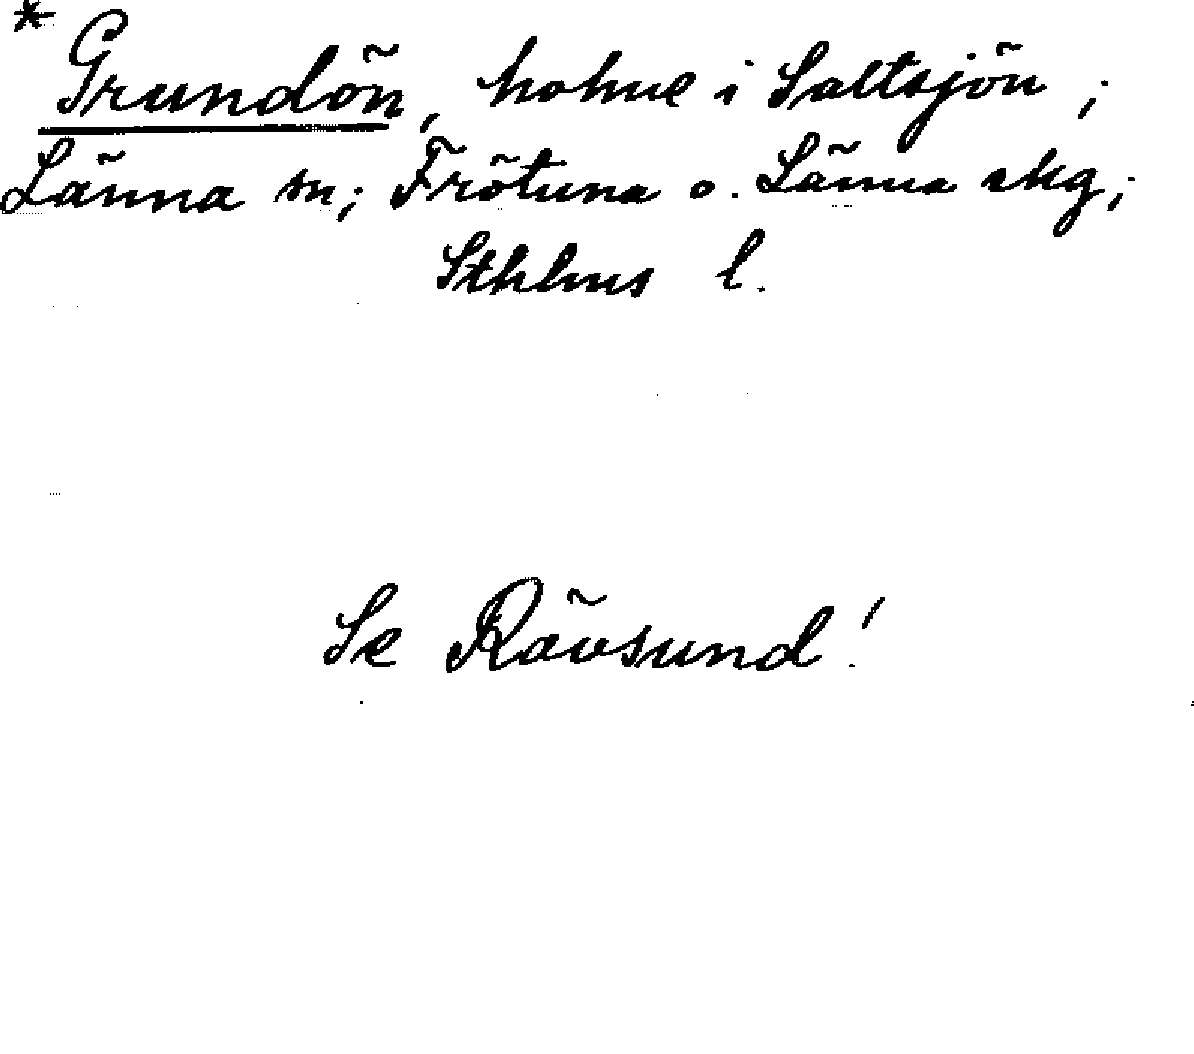 * Grundön, holme i Saltsjön ;
Länna sn; Frötuna o. Länna skg;
Sthlms l.
Se Rävsund!